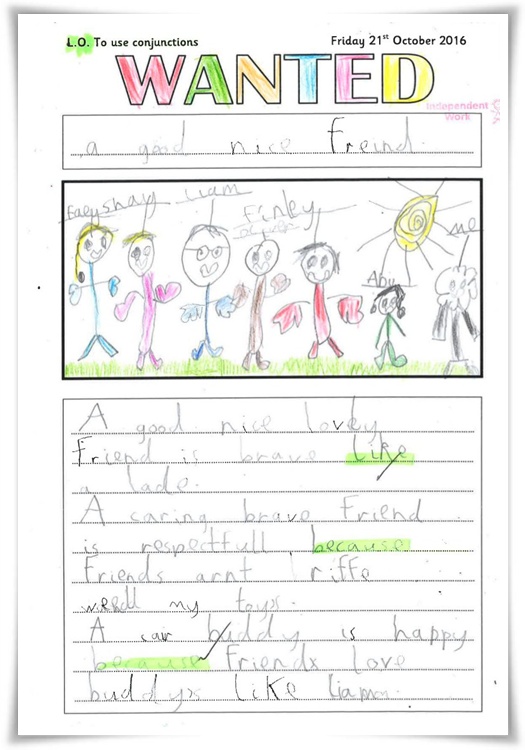 L.O. To use conjunctions Friday 21st October 2016
WANTED
Independent Work
a good nice freind.
Liam
Finley
Abu
me
A good nice lovley
friend is brave like
a lade.
A caring brave friend
is respectfull because
friends arnt riffe
my toys.
A car buddy is happy
because friends love
buddys like Liam.